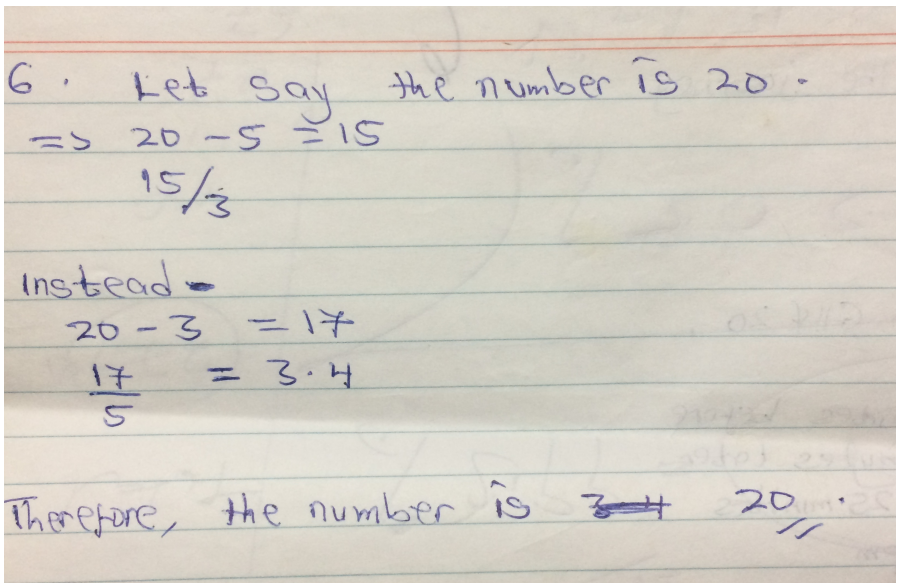 6. Let say the number is 20.
=> 20 - 5 = 15
15/3
Instead -
20 - 3 = 17
17/5 = 3.4
Therefore, the number is 3.4 20.